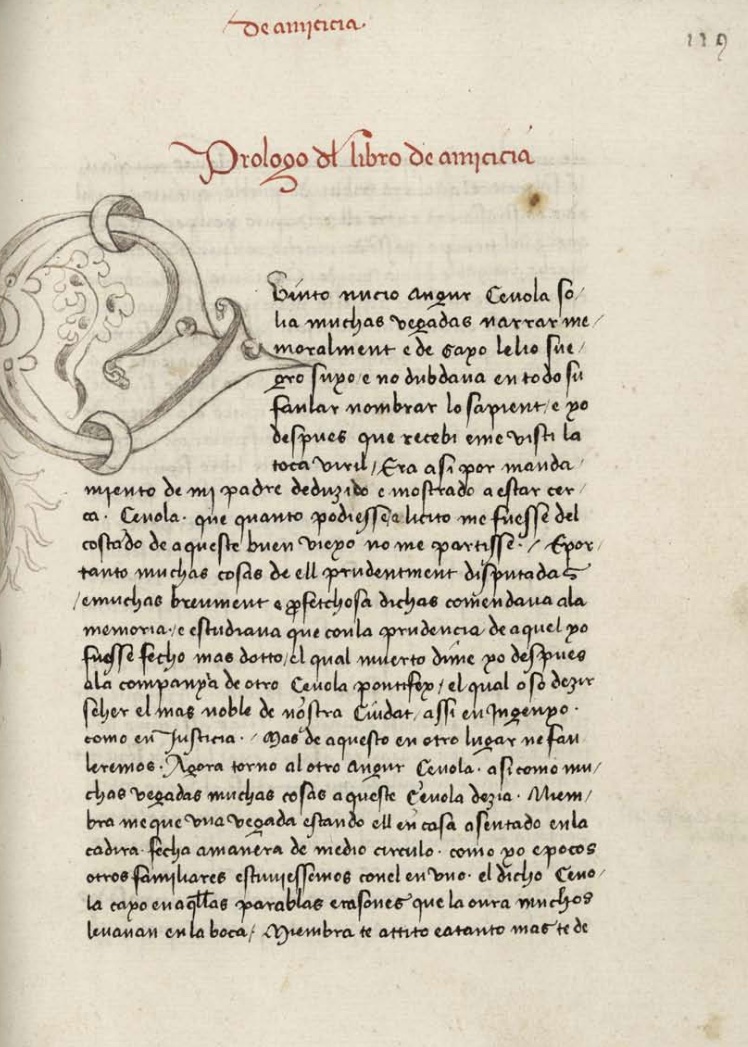 De amicicia
119
Prologo dl libro de amicicia
Quinto mucio Augur Ceuola so/
lia muchas vegadas narrar me/
moralment e de gayo lelio sue/
gro suyo e no dubdaua en todo su
faular nombrar lo sapient / e yo
despues que recebi e me visti la
toca viril / Era asi por manda/
miento de mi padre deduzido e mostrado a estar cer/
ca . Ceuola . que quanto podiesse e licito me fuesse del
costado de aqueste buen vieyo no me partisse . / E por/
tanto muchas cosas de ell prudentment disputadas
/ e muchas breument e ꝓfetchosa dichas comẽdaua ala
memoria ./ e estudiaua que con la prudencia de aquel yo
fuesse fecho mas dotto / el qual muerto di me yo despues
ala companya de otro Ceuola pontifex / el qual oso dezir
seher el mas noble de nostra Ciudat / assi en Ingenyo .
como en Justicia . / Mas de aquesto en otro lugar ne fau
leremos . Agora torno al otro Augur Ceuola . asi como mu/
chas vegadas muchas cosas aqueste Ceuola dezia . Miem/
bra me que vna vegada estando ell en casa asentado en la
cadira . fecha a manera de medio circulo . como yo e pocos
otros familiares estuuiessemos con el en vno . el dicho Ceuo/
la cayo en aq̃llas parablas e rasones que la oura muchos
leuauan en la boca / Miembra te attito e a tanto mas te de